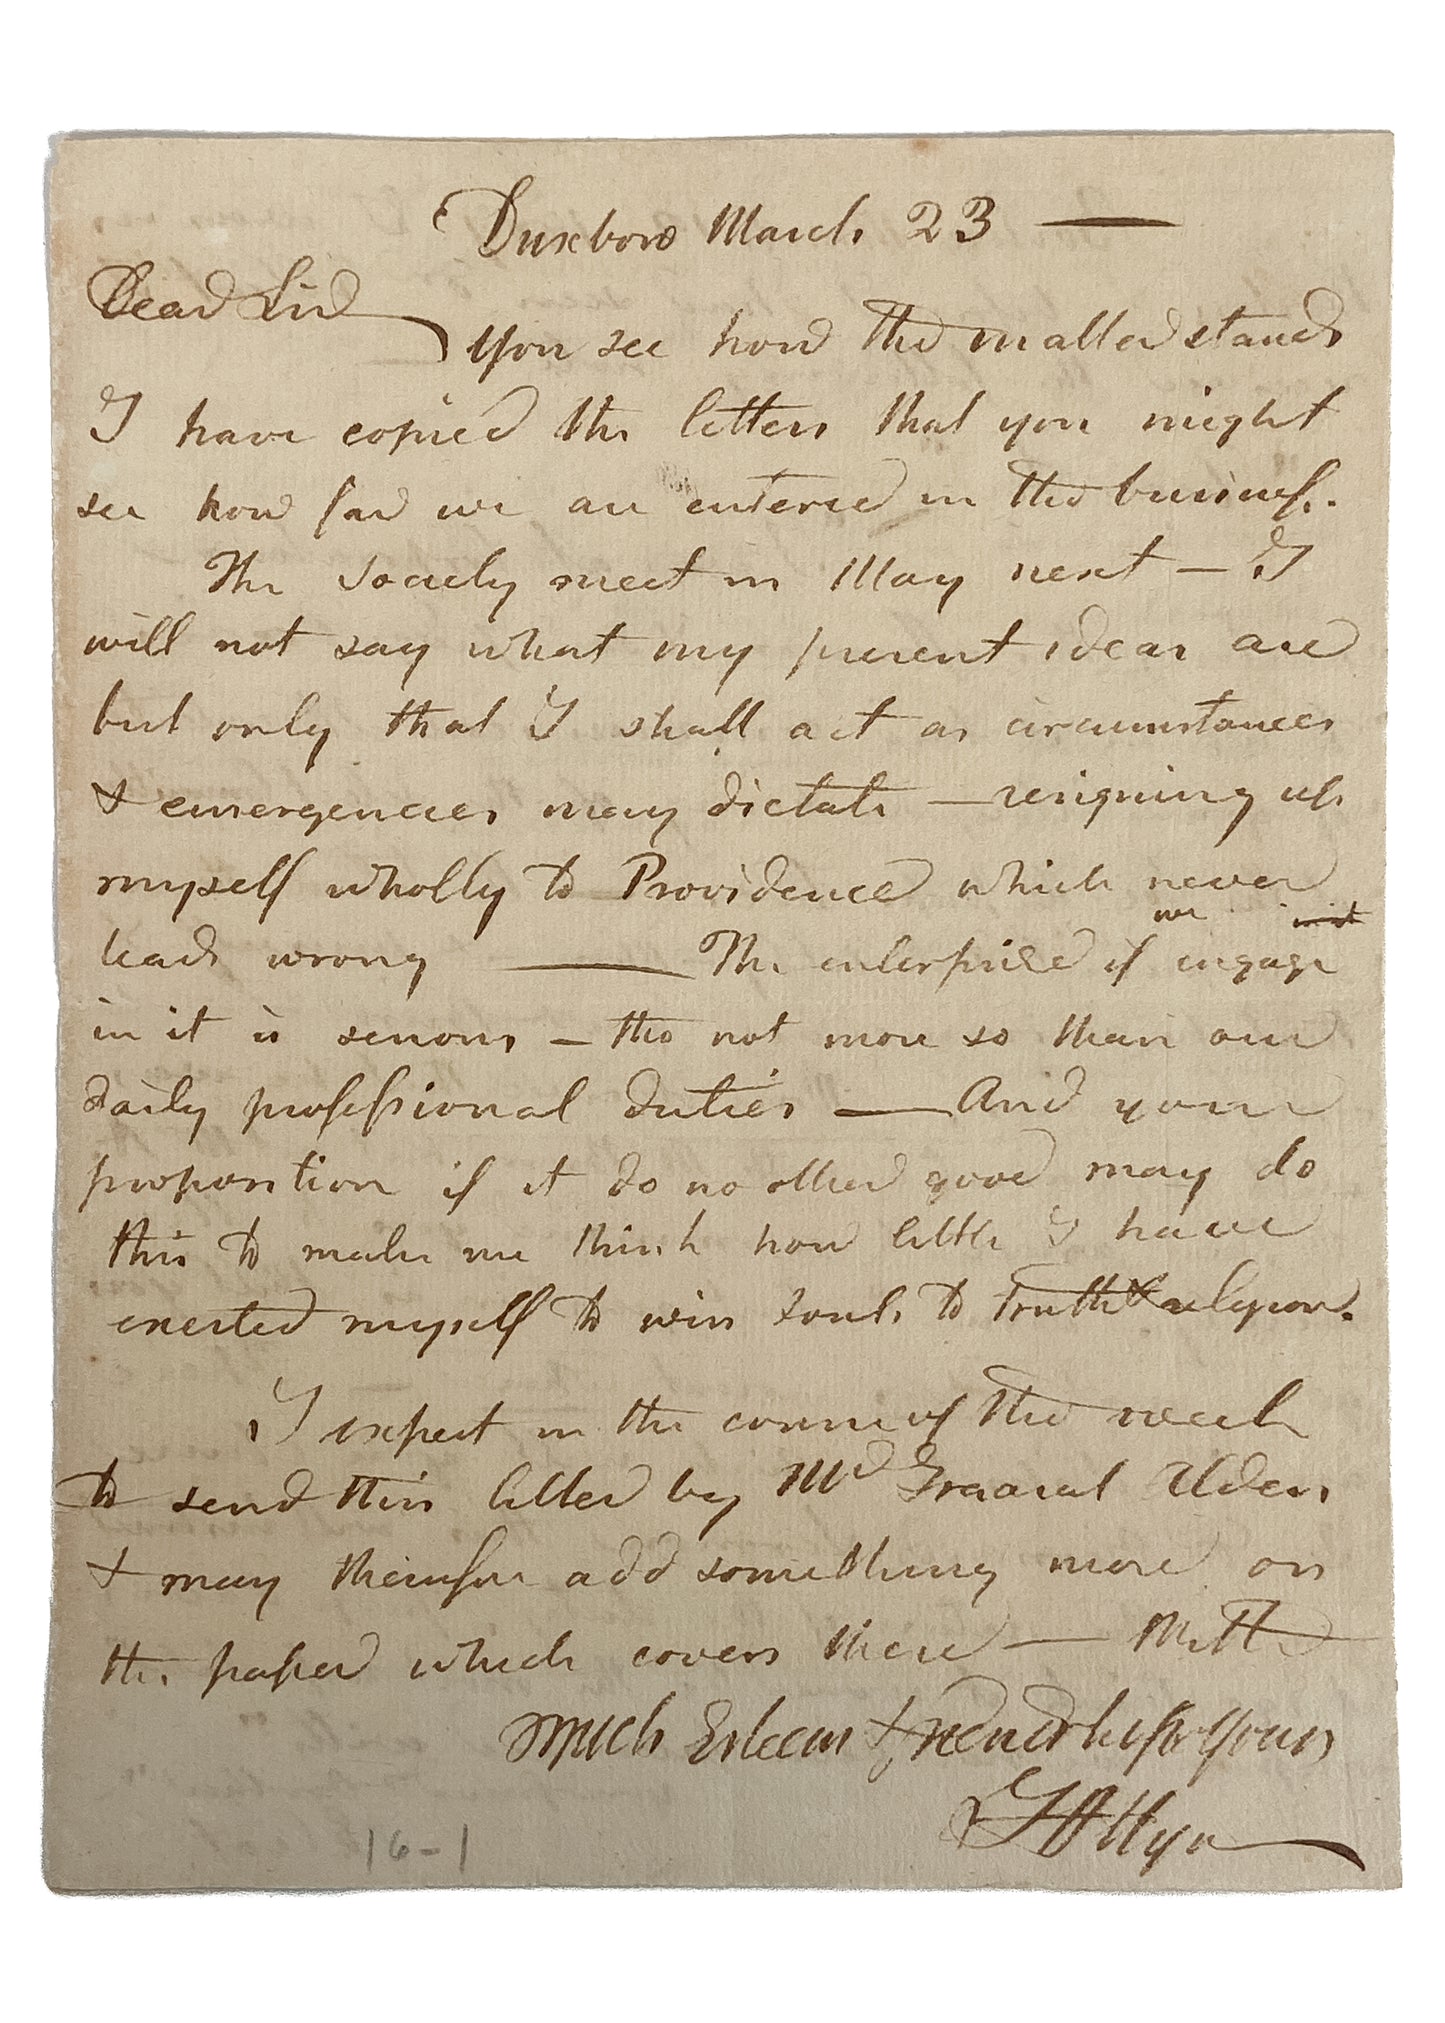 Duxboro March 23 —
Dear Sir
You see how the matter stands
I have copied the letters that you might
see how far we are entered in the business.
The Society meet in May next — I
will not say what my present ideas are
but only that I shall act as circumstances
& emergencies may dictate — resigning up
myself wholly to Providence which never
leads wrong — The enterprise if we engage
in it is serious — tho not more so than our
daily professional duties — And your
proposition if it do no other good may do
this to make me think how little I have
exerted myself to win souls to truth & religion.
I expect in the course of the week
to send this letter by Mr Alden
& may therefore add something more on
the paper which covers these — With
much Esteem & friendship Yours
J Allyn
16-1